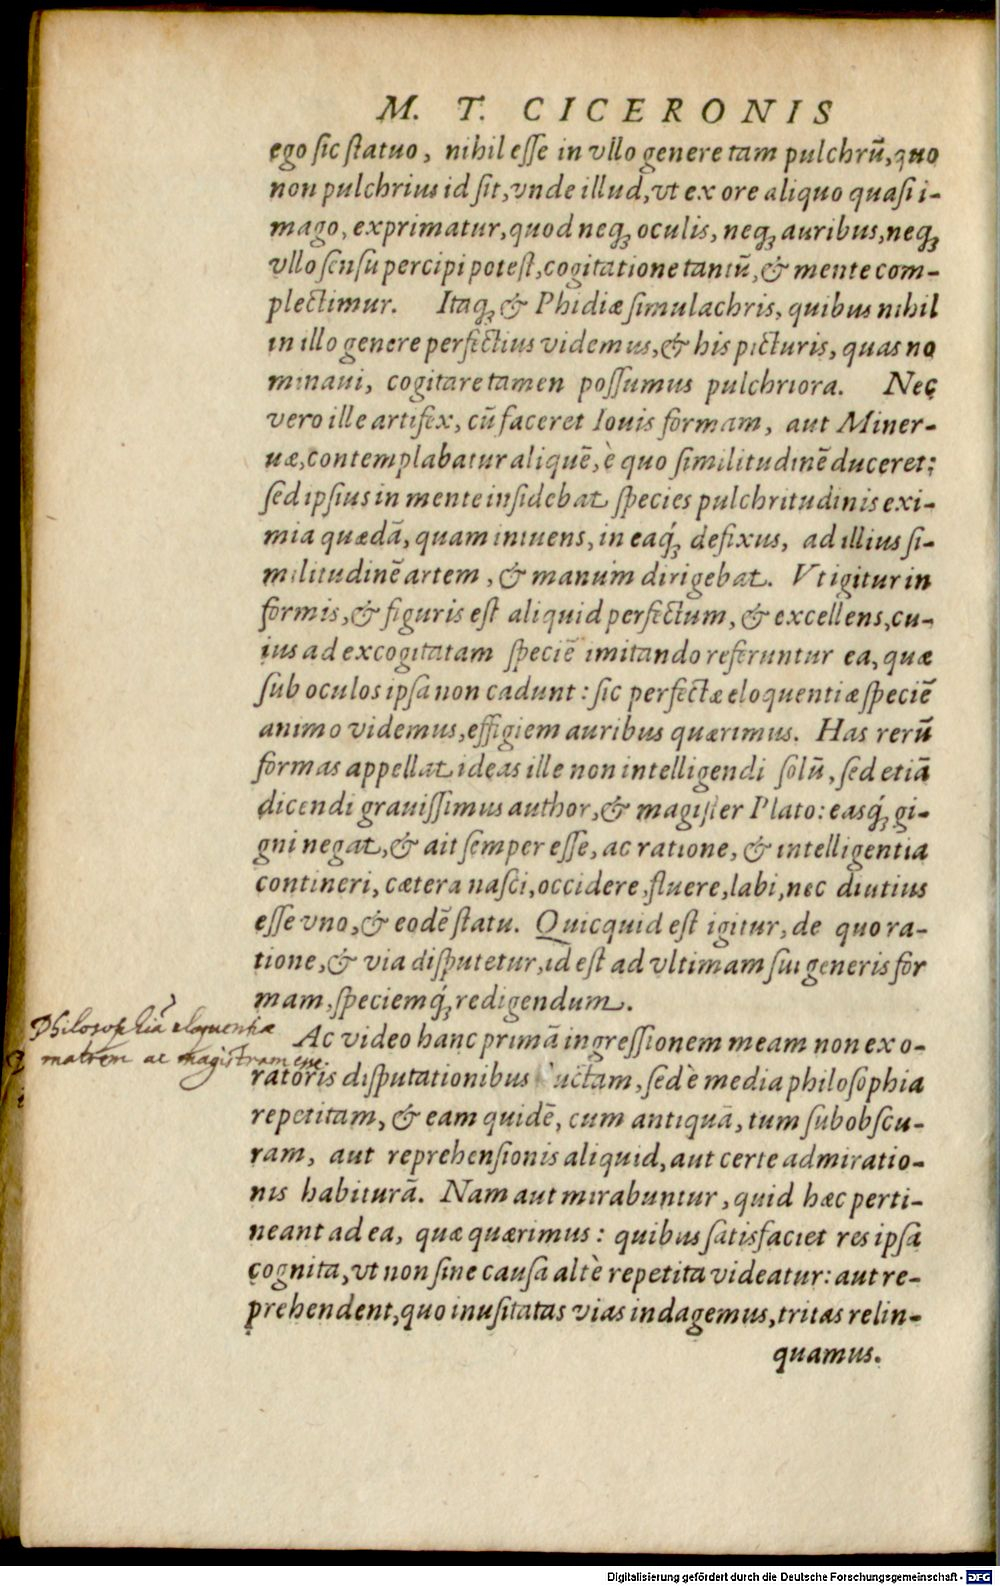 M. T. CICERONIS
ego ſic ſtatuo, nihil eſſe in vllo genere tam pulchrũ, quo
non pulchrius id ſit, vnde illud, vt ex ore aliquo quaſi i-
mago, exprimatur, quod neqꝫ oculis, neqꝫ auribus, neqꝫ
vllo ſenſu percipi poteſt, cogitatione tantũ, & mente com-
plectimur. Itaqꝫ & Phidiæ ſimulachris, quibus nihil
in illo genere perfectius videmus, & his picturis, quas no
minaui, cogitare tamen poſſumus pulchriora. Nec
vero ille artifex, cũ faceret Iouis formam, aut Miner-
uæ, contemplabatur aliquẽ, è quo ſimilitudinẽ duceret:
ſed ipſius in mente inſidebat ſpecies pulchritudinis exi-
mia quædã, quam intuens, in eaq́ꝫ defixus, ad illius ſi-
militudinẽ artem, & manum dirigebat. Vt igitur in
formis, & figuris eſt aliquid perfectum, & excellens, cu-
ius ad excogitatam ſpeciẽ imitando referuntur ea, quæ
ſub oculos ipſa non cadunt: ſic perfectæ eloquentiæ ſpeciẽ
animo videmus, effigiem auribus quærimus. Has rerũ
formas appellat ideas ille non intelligendi ſolũ, ſed etiã
dicendi grauiſſimus author, & magiſter Plato: easq́ꝫ gi-
gni negat, & ait ſemper eſſe, ac ratione, & intelligentia
contineri, cætera naſci, occidere, fluere, labi, nec diutius
eſſe vno, & eodẽ ſtatu. Quicquid eſt igitur, de quo ra-
tione, & via diſputetur, id eſt ad vltimam ſui generis for
mam, ſpeciemq́ꝫ redigendum.
Philosophiã eloquentiæ
matrem ac magistram
Ac video hanc primã ingreſſionem meam non ex o-
ratoris diſputationibus ductam, ſed è media philoſophia
repetitam, & eam quidẽ, cum antiquã, tum ſubobſcu-
ram, aut reprehenſionis aliquid, aut certe admiratio-
nis habiturã. Nam aut mirabuntur, quid hæc perti-
neant ad ea, quæ quærimus: quibus ſatisfaciet res ipſa
cognita, vt non ſine cauſa altè repetita videatur: aut re-
prehendent, quo inuſitatas vias indagemus, tritas relin-
quamus.
Digitalisierung gefördert durch die Deutsche Forschungsgemeinschaft - DFG